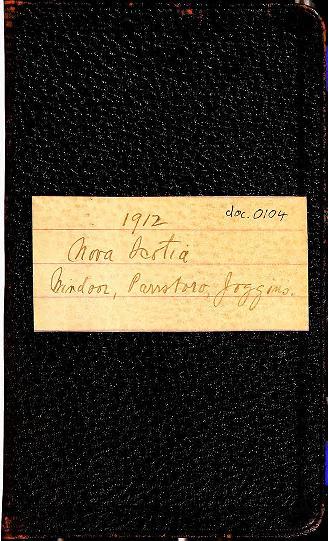 1912
doc. 0104
Nova Scotia
Windsor, Parrsboro, Joggins.